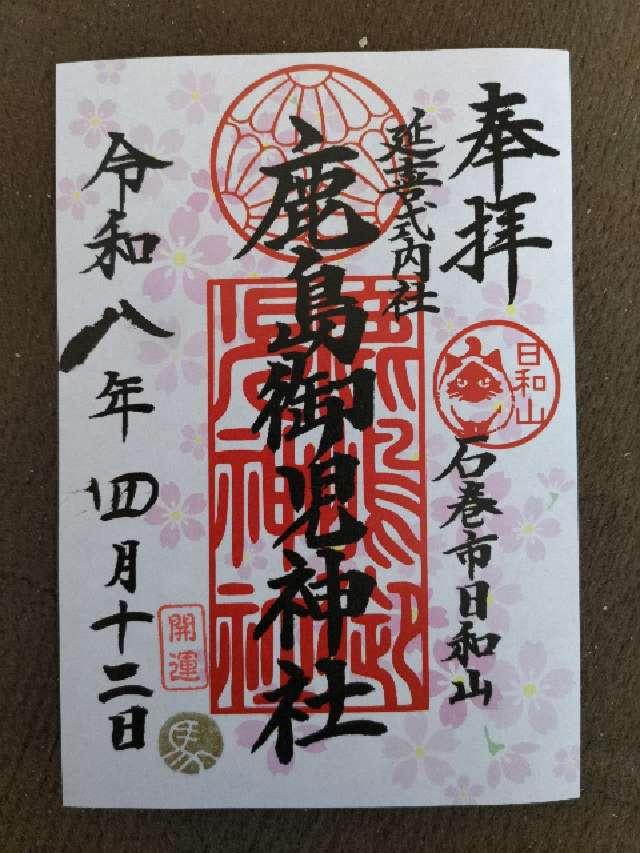 奉拝
延喜式内社
日和山
石巻市日和山
鹿島御児神社
開運
馬
令和八年四月十二日